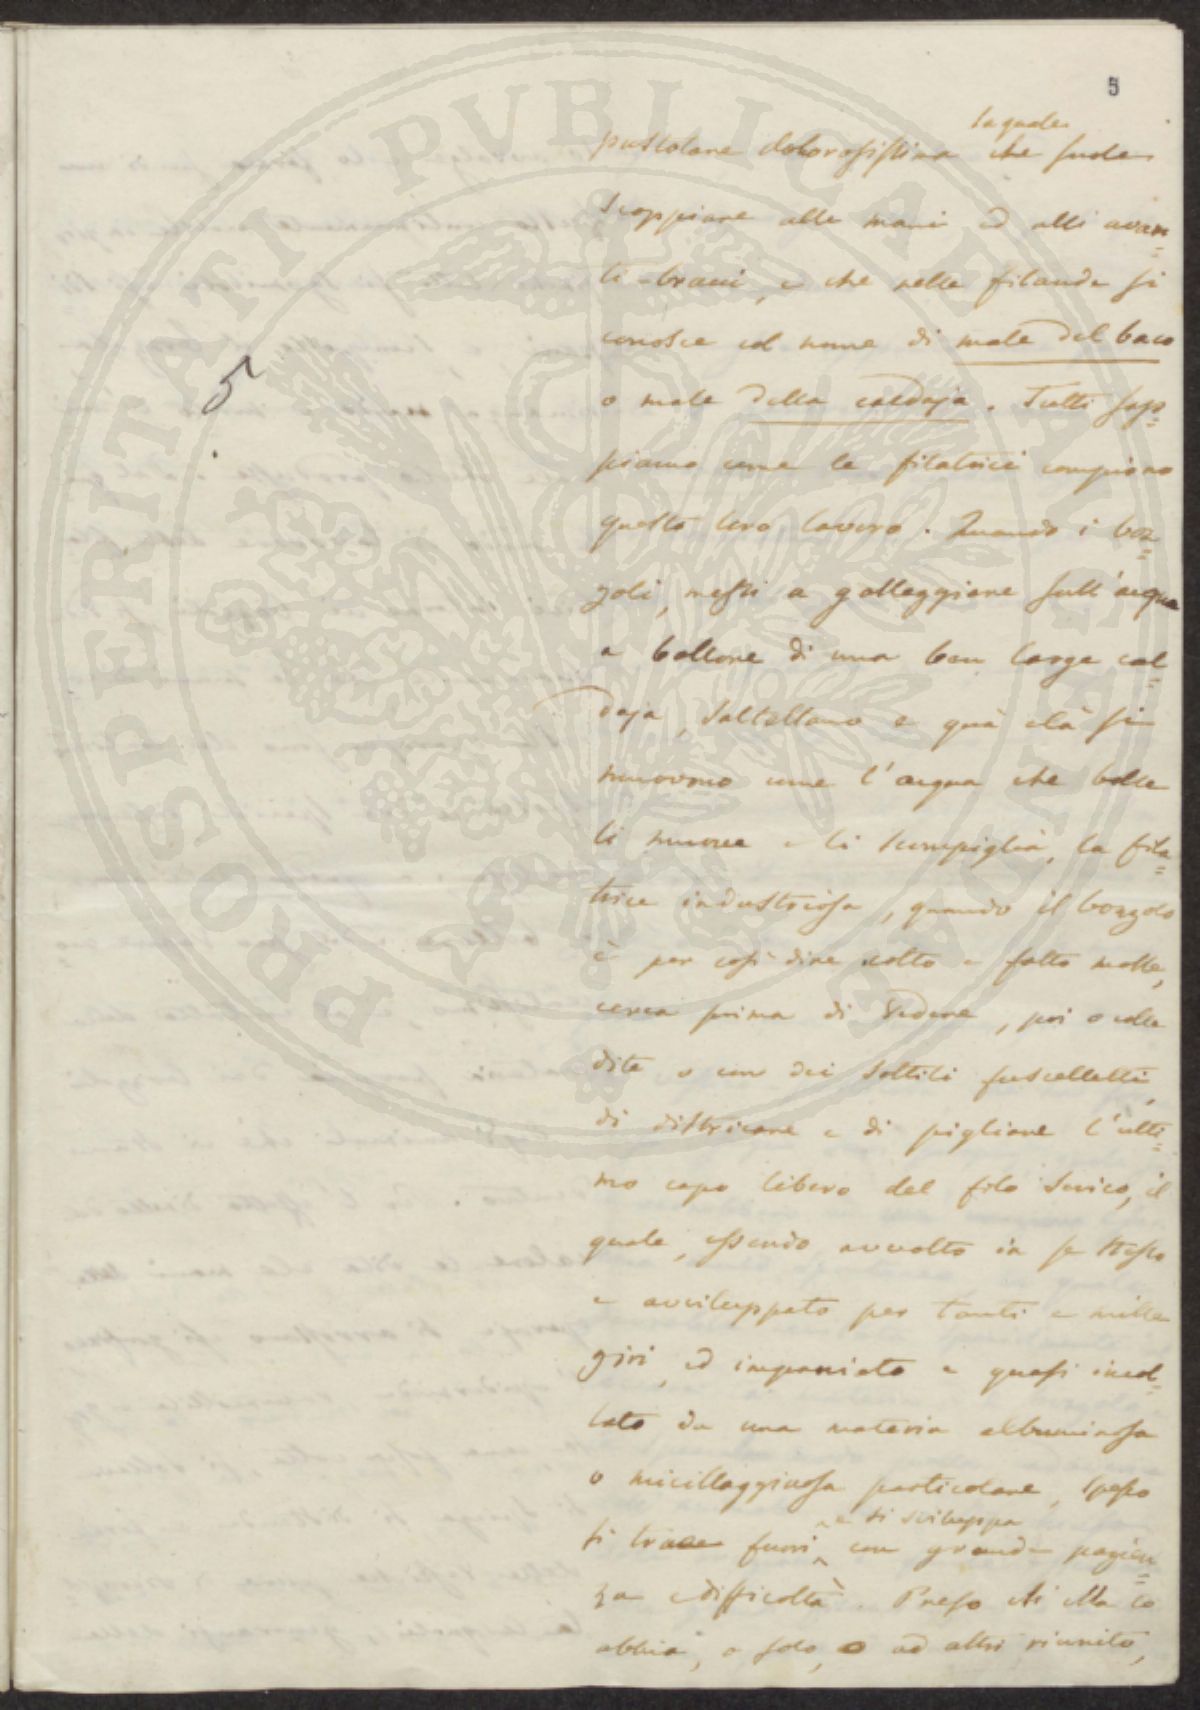 5
la quale
pustolare dolorosissima che suole
scoppiare alle mani ed alli avan=
ti-bracci, e che nelle filande si
conosce col nome di male del baco
o male della caldaja. Tutti sap=
piamo come le filatrici compiono
questo loro lavoro. Quando i boz=
zoli, messi a galleggiare sull'acqua
a bollore di una ben larga cal=
daja, saltellano e quà e là si
muovono come l'acqua che bolle
li muove e li scompiglia, la fila=
trice industriosa, quando il bozzolo
è per così dire cotto e fatto molle,
cerca prima di vedere, poi o colle
dita o con dei sottili fuscelletti,
di districare e di pigliare l'ulti=
mo capo libero del filo serico, il
quale, essendo avvolto in se stesso
e avviluppato per tanti e mille
giri, ed impaniato e quasi incol=
lato da una materia albuminosa
o mucillagginosa particolare, spesso
e si sviluppa
si trae fuori con grande pazien=
za e difficoltà. Preso che ella lo
abbia, o solo, o ad altri riunito,
5
PROSPERITATI PUBLICAE AUGENDAE